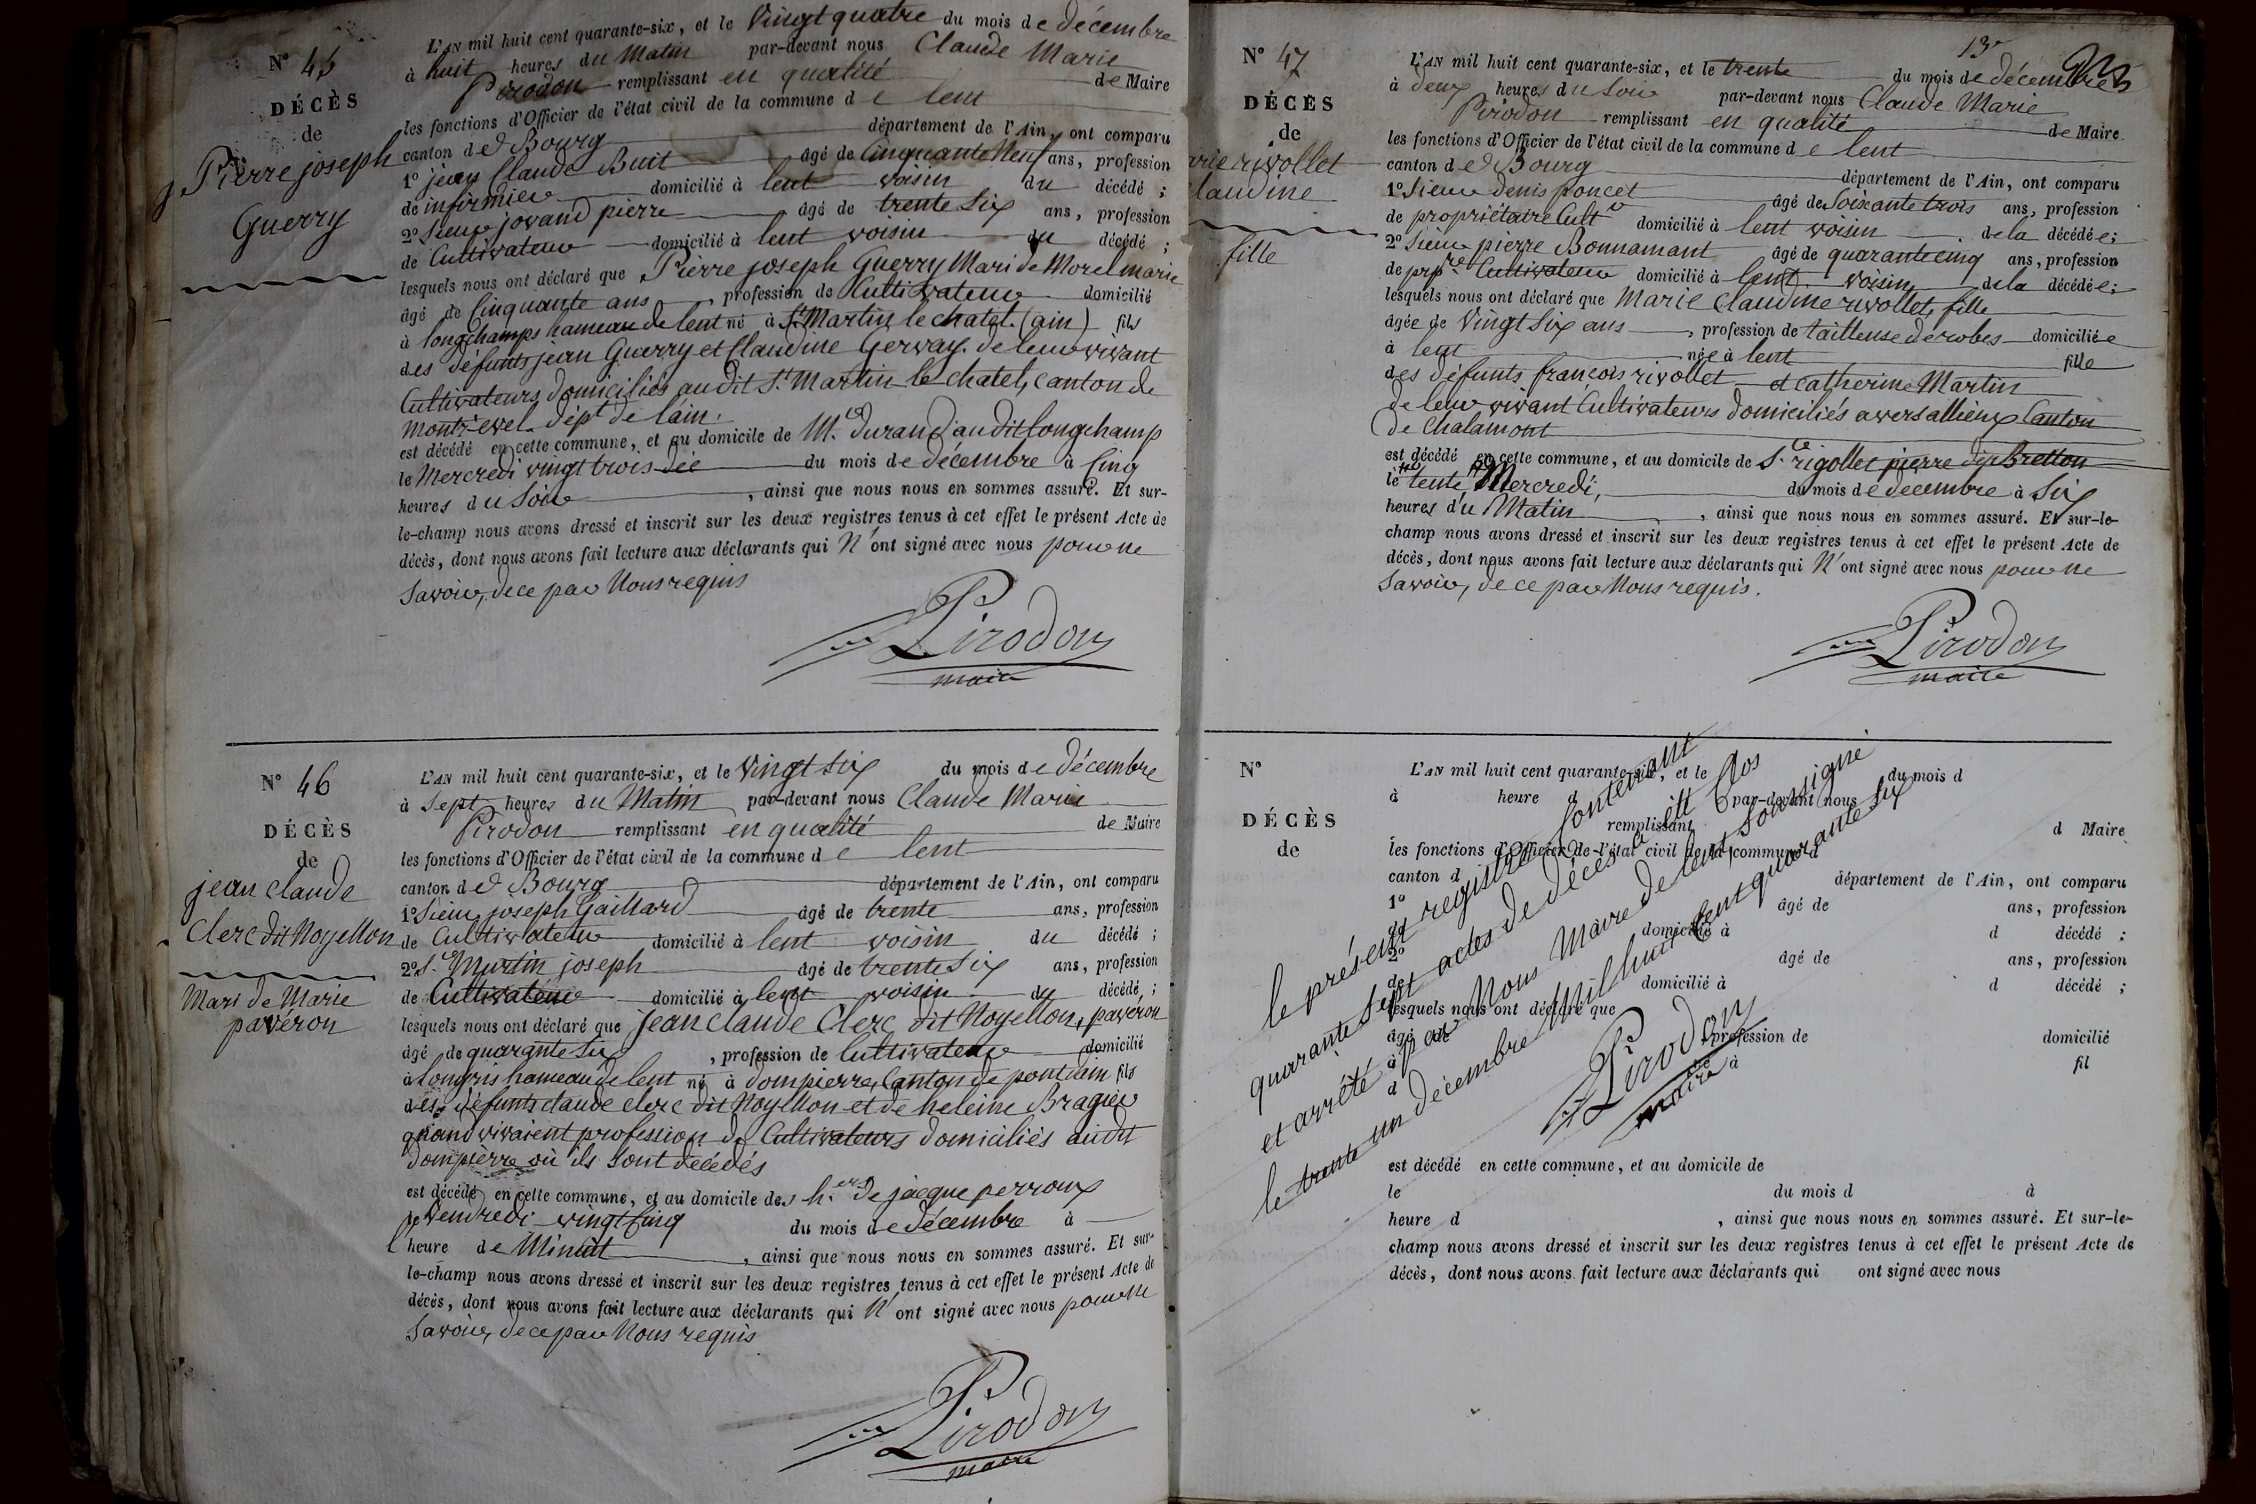 N° 45
DÉCÈS
de
Pierre joseph
Guerry
L'AN mil huit cent quarante-six, et le Vingt quatre du mois de décembre
à huit heures du Matin par-devant nous Claude Marie
Pirodon remplissant en qualité de Maire
les fonctions d'Officier de l'état civil de la commune de lent
canton de Bourg département de l'Ain, ont comparu
1° jean Claude Buit âgé de Cinquante Neuf ans, profession
de infirmier domicilié à lent voisin du décédé ;
2° Sieur jovand pierre âgé de trente Six ans, profession
de Cultivateur domicilié à lent voisin du décédé ;
lesquels nous ont déclaré que Pierre joseph Guerry Mari de Morel marie
âgé de Cinquante ans, profession de Cultivateur domicilié
à longchamps hameau de lent né à St Martin le chatel (ain) fils
des défunts jean Guerry et Claudine Gervay de leur vivant
Cultivateurs domiciliés audit St Martin le chatel, canton de
montrevel dépt de l'ain.
est décédé en cette commune, et au domicile de Mr. durand audit longchamp
le Mercredi vingt trois du mois de décembre à Cinq
heures du Soir, ainsi que nous nous en sommes assuré. Et sur-
le-champ nous avons dressé et inscrit sur les deux registres tenus à cet effet le présent Acte de
décès, dont nous avons fait lecture aux déclarants qui N'ont signé avec nous pour ne
Savoir, de ce par Nous requis
Pirodon
maire
N° 46
DÉCÈS
de
jean claude
Clerc dit Noyellon
Mari de Marie
pavéron
L'AN mil huit cent quarante-six, et le Vingt six du mois de décembre
à Sept heures du Matin par-devant nous Claude Marie
Pirodon remplissant en qualité de Maire
les fonctions d'Officier de l'état civil de la commune de lent
canton de Bourg département de l'Ain, ont comparu
1° Sieur joseph Gaillard âgé de trente ans, profession
de Cultivateur domicilié à lent voisin du décédé ;
2° Sr Martin joseph âgé de trente Six ans, profession
de Cultivateur domicilié à lent voisin du décédé ;
lesquels nous ont déclaré que jean claude Clerc dit Noyellon, pavéron
âgé de quarante Six, profession de Cultivateur domicilié
à Longris hameau de lent né à dompierre, Canton de pontdain fils
des défunts claude clerc dit Noyellon et de heleine Bragier
quand vivaient profession de Cultivateurs domiciliés audit
dompierre où ils sont décédés
est décédé en cette commune, et au domicile des hers de jacque perroux
le Vendredi vingt Cinq du mois de décembre à
heure de Minuit, ainsi que nous nous en sommes assuré. Et sur-
le-champ nous avons dressé et inscrit sur les deux registres tenus à cet effet le présent Acte de
décès, dont nous avons fait lecture aux déclarants qui N'ont signé avec nous pour ne
Savoir, de ce par Nous requis
Pirodon
maire
13e
N° 47
DÉCÈS
de
rie rivollet
laudine
fille
L'AN mil huit cent quarante-six, et le trente du mois de décembre
à deux heures du Soir par-devant nous Claude Marie
Pirodon remplissant en qualité de Maire
les fonctions d'Officier de l'état civil de la commune de lent
canton de Bourg département de l'Ain, ont comparu
1° Sieur denis poncet âgé de Soixante trois ans, profession
de propriétaire Cultr domicilié à lent voisin de la décédée ;
2° Sieur pierre Bonnamant âgé de quarante cinq ans, profession
de propre Cultivateur domicilié à lent voisin de la décédée ;
lesquels nous ont déclaré que Marie Claudine rivollet, fille
âgée de Vingt Six ans, profession de tailleuse de robes domiciliée
à lent née à lent fille
des défunts françois rivollet et catherine Martin
de leur vivant Cultivateurs domiciliés a versallieux Canton
de Chalamont
est décédé en cette commune, et au domicile de Sr rigollet pierre dep Bretton
le tente Mercredi, du mois de decembre à Six
heures du Matin, ainsi que nous nous en sommes assuré. Et sur-le-
champ nous avons dressé et inscrit sur les deux registres tenus à cet effet le présent Acte de
décès, dont nous avons fait lecture aux déclarants qui N'ont signé avec nous pour ne
Savoir, de ce par Nous requis.
Pirodon
maire
N°
DÉCÈS
de
L'AN mil huit cent quarante-six, et le du mois d
à heure d par-devant nous
remplissant d Maire
les fonctions d'Officier de l'état civil de la commune d
canton d département de l'Ain, ont comparu
1° âgé de ans, profession
de domicilié à d décédé ;
2° âgé de ans, profession
de domicilié à d décédé ;
lesquels nous ont déclaré que
âgé de profession de domicilié
à né à fil
d
le présent registre Contenant
quarante Sept actes de décès a été Clos
et arrêté par Nous Maire de lent, Soussigné
le trente un décembre Mil huit Cent quarante Six
Pirodon
maire
est décédé en cette commune, et au domicile de
le du mois d à
heure d, ainsi que nous nous en sommes assuré. Et sur-le-
champ nous avons dressé et inscrit sur les deux registres tenus à cet effet le présent Acte de
décès, dont nous avons fait lecture aux déclarants qui ont signé avec nous